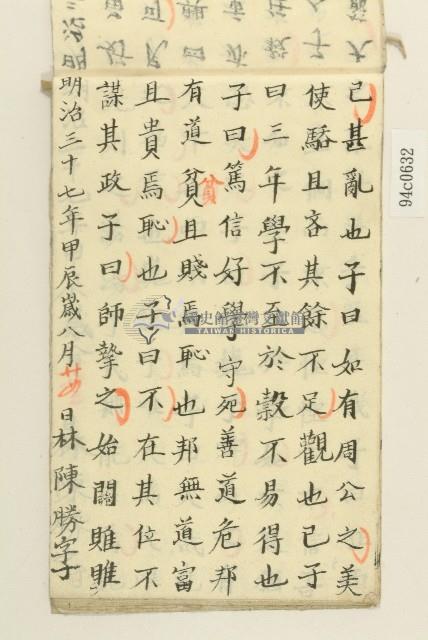 己甚亂也子曰如有周公之美
使驕且吝其餘不足觀也已子
曰三年學不至於穀不易得也
子曰篤信好學守死善道危邦
有道貧且賤焉恥也邦無道富
貧
且貴焉恥也子曰不在其位不
謀其政子曰師摯之始關雎雎
明治三十七年甲辰歲八月廿日林陳勝字子
國史館臺灣文獻館
TAIWAN HISTORICA
94c0632